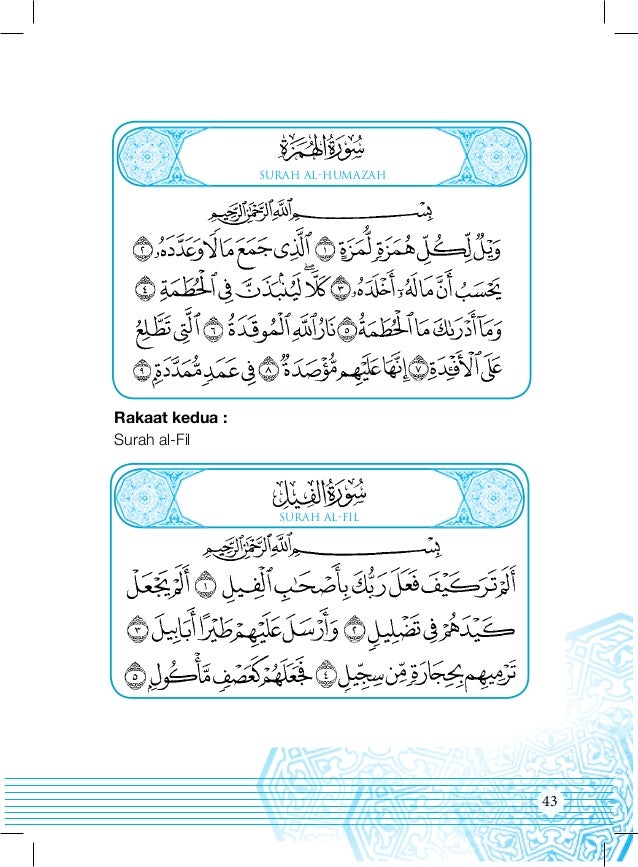 سُورَةُ الهُمَزَة
SURAH AL-HUMAZAH
بِسْمِ ٱللَّهِ ٱلرَّحْمَٰنِ ٱلرَّحِيمِ
وَيْلٌ لِّكُلِّ هُمَزَةٍ لُّمَزَةٍ ١ ٱلَّذِى جَمَعَ مَالًا وَعَدَّدَهُۥ ٢
يَحْسَبُ أَنَّ مَالَهُۥٓ أَخْلَدَهُۥ ٣ كَلَّا ۖ لَيُنۢبَذَنَّ فِى ٱلْحُطَمَةِ ٤
وَمَآ أَدْرَىٰكَ مَا ٱلْحُطَمَةُ ٥ نَارُ ٱللَّهِ ٱلْمُوقَدَةُ ٦ ٱلَّتِى تَطَّلِعُ
عَلَى ٱلْأَفْـِٔدَةِ ٧ إِنَّهَا عَلَيْهِم مُّؤْصَدَةٌ ٨ فِى عَمَدٍ مُّمَدَّدَةٍۭ ٩
Rakaat kedua :
Surah al-Fil
سُورَةُ الفِيل
SURAH AL-FIL
بِسْمِ ٱللَّهِ ٱلرَّحْمَٰنِ ٱلرَّحِيمِ
أَلَمْ تَرَ كَيْفَ فَعَلَ رَبُّكَ بِأَصْحَٰبِ ٱلْفِيلِ ١ أَلَمْ يَجْعَلْ
كَيْدَهُمْ فِى تَضْلِيلٍ ٢ وَأَرْسَلَ عَلَيْهِمْ طَيْرًا أَبَابِيلَ ٣
تَرْمِيهِم بِحِجَارَةٍ مِّن سِجِّيلٍ ٤ فَجَعَلَهُمْ كَعَصْفٍ مَّأْكُولٍۭ ٥
43